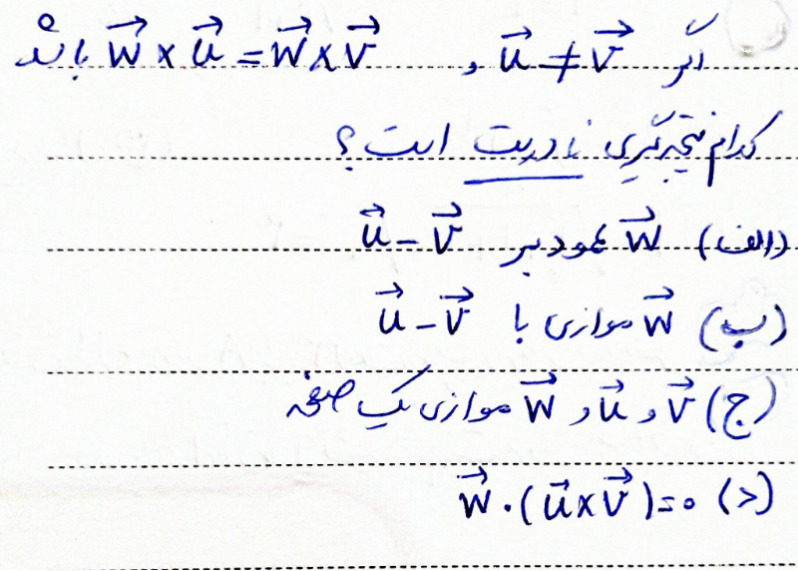 اگر u⃗ ≠ v⃗ و w⃗ × u⃗ = w⃗ × v⃗ باشد
کدام نتیجه‌گیری نادرست است؟
(الف) w⃗ عمود بر u⃗ − v⃗
(ب) w⃗ موازی با u⃗ − v⃗
(ج) v⃗ و u⃗ و w⃗ موازی یک صفحه
(د) w⃗ · (u⃗ × v⃗) = ۰